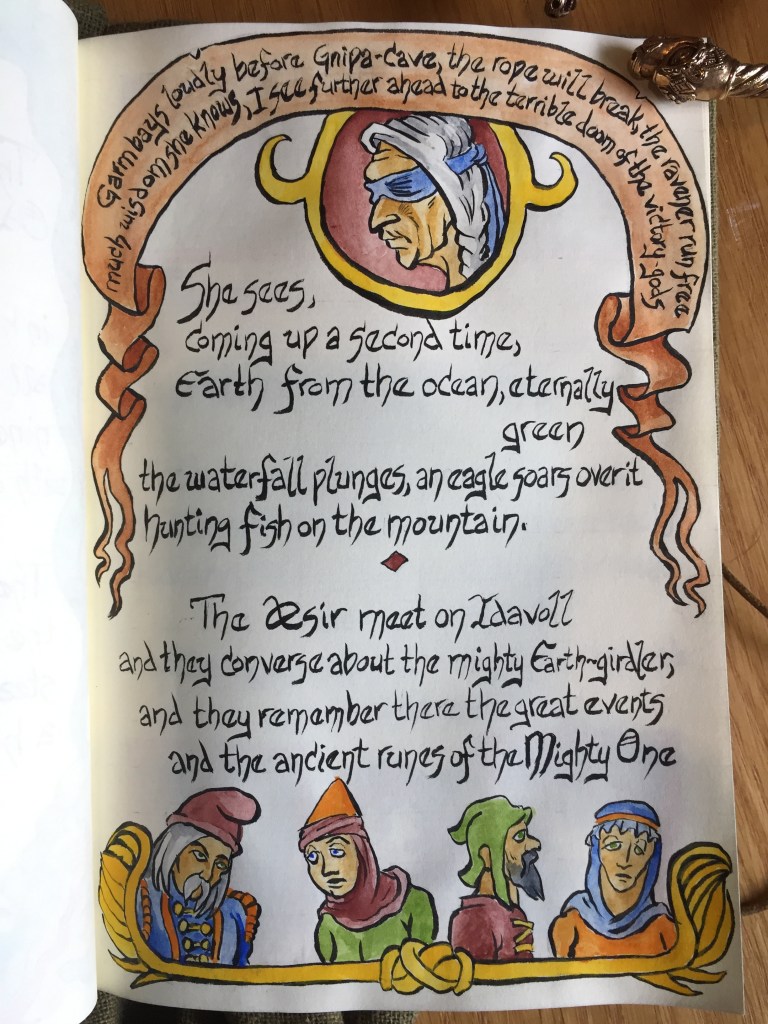 Garm bays loudly before Gnipa-Cave, the rope will break, the ravener run free
much wisdom she knows, I see further ahead to the terrible doom of the victory-gods
She sees,
coming up a second time,
Earth from the ocean, eternally
green
the waterfall plunges, an eagle soars over it
hunting fish on the mountain.
The Æsir meet on Idavoll
and they converse about the mighty Earth-girdler,
and they remember there the great events
and the ancient runes of the Mighty One